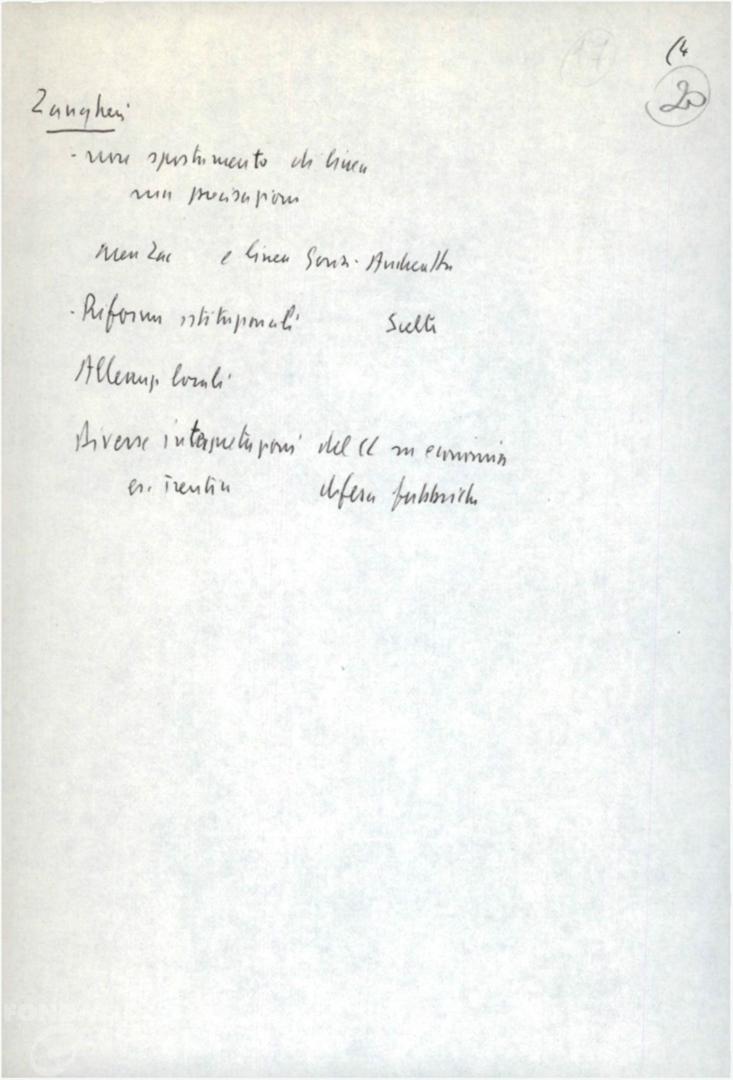 (4
17
20
Zangheri
- non spostamento di linea
ma precisazioni
e linea Goria-Andreatta
- Riforme istituzionali Scelte
Alleanze locali
Diverse interpretazioni del CC su economia
es. Trentin difesa fabbriche
FOND